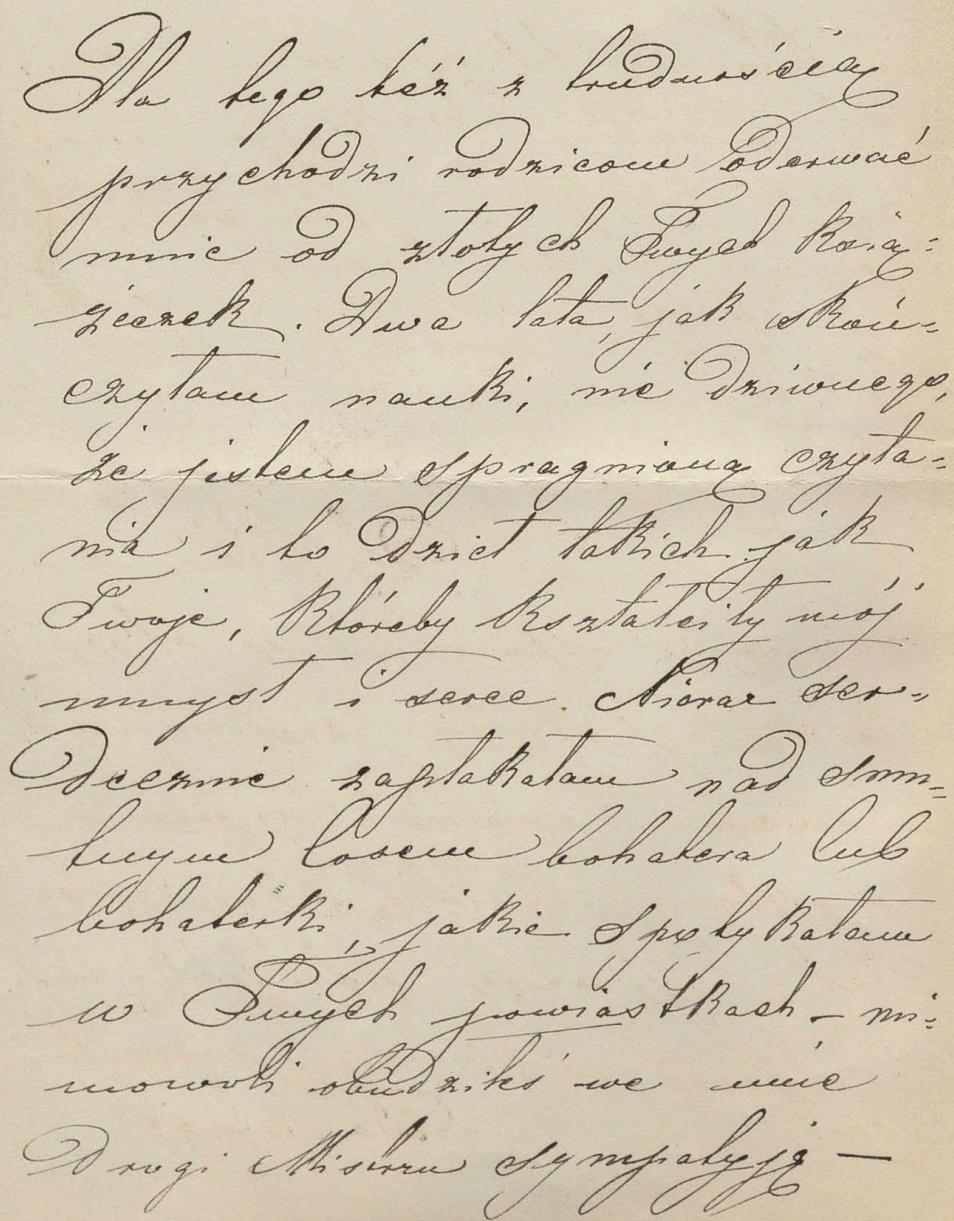 Dla tego téż z trudnością
przychodzi rodzicom oderwać
mnie od złotych Twych ksią=
żeczek. Dwa lata, jak skoń=
czyłam nauki, nic dziwnego,
że jestem spragnioną czyta=
nia i to dzieł takich jak
Twoje, któreby kształciły mój
umysł i serce. Nieraz ser=
decznie zapłakałam nad smu=
tnym losem bohatera lub
bohaterki, jakie spotykałam
w Twych powiastkach – mi=
mowoli obudziłeś we mnie
Drogi Mistrzu sympatyję —